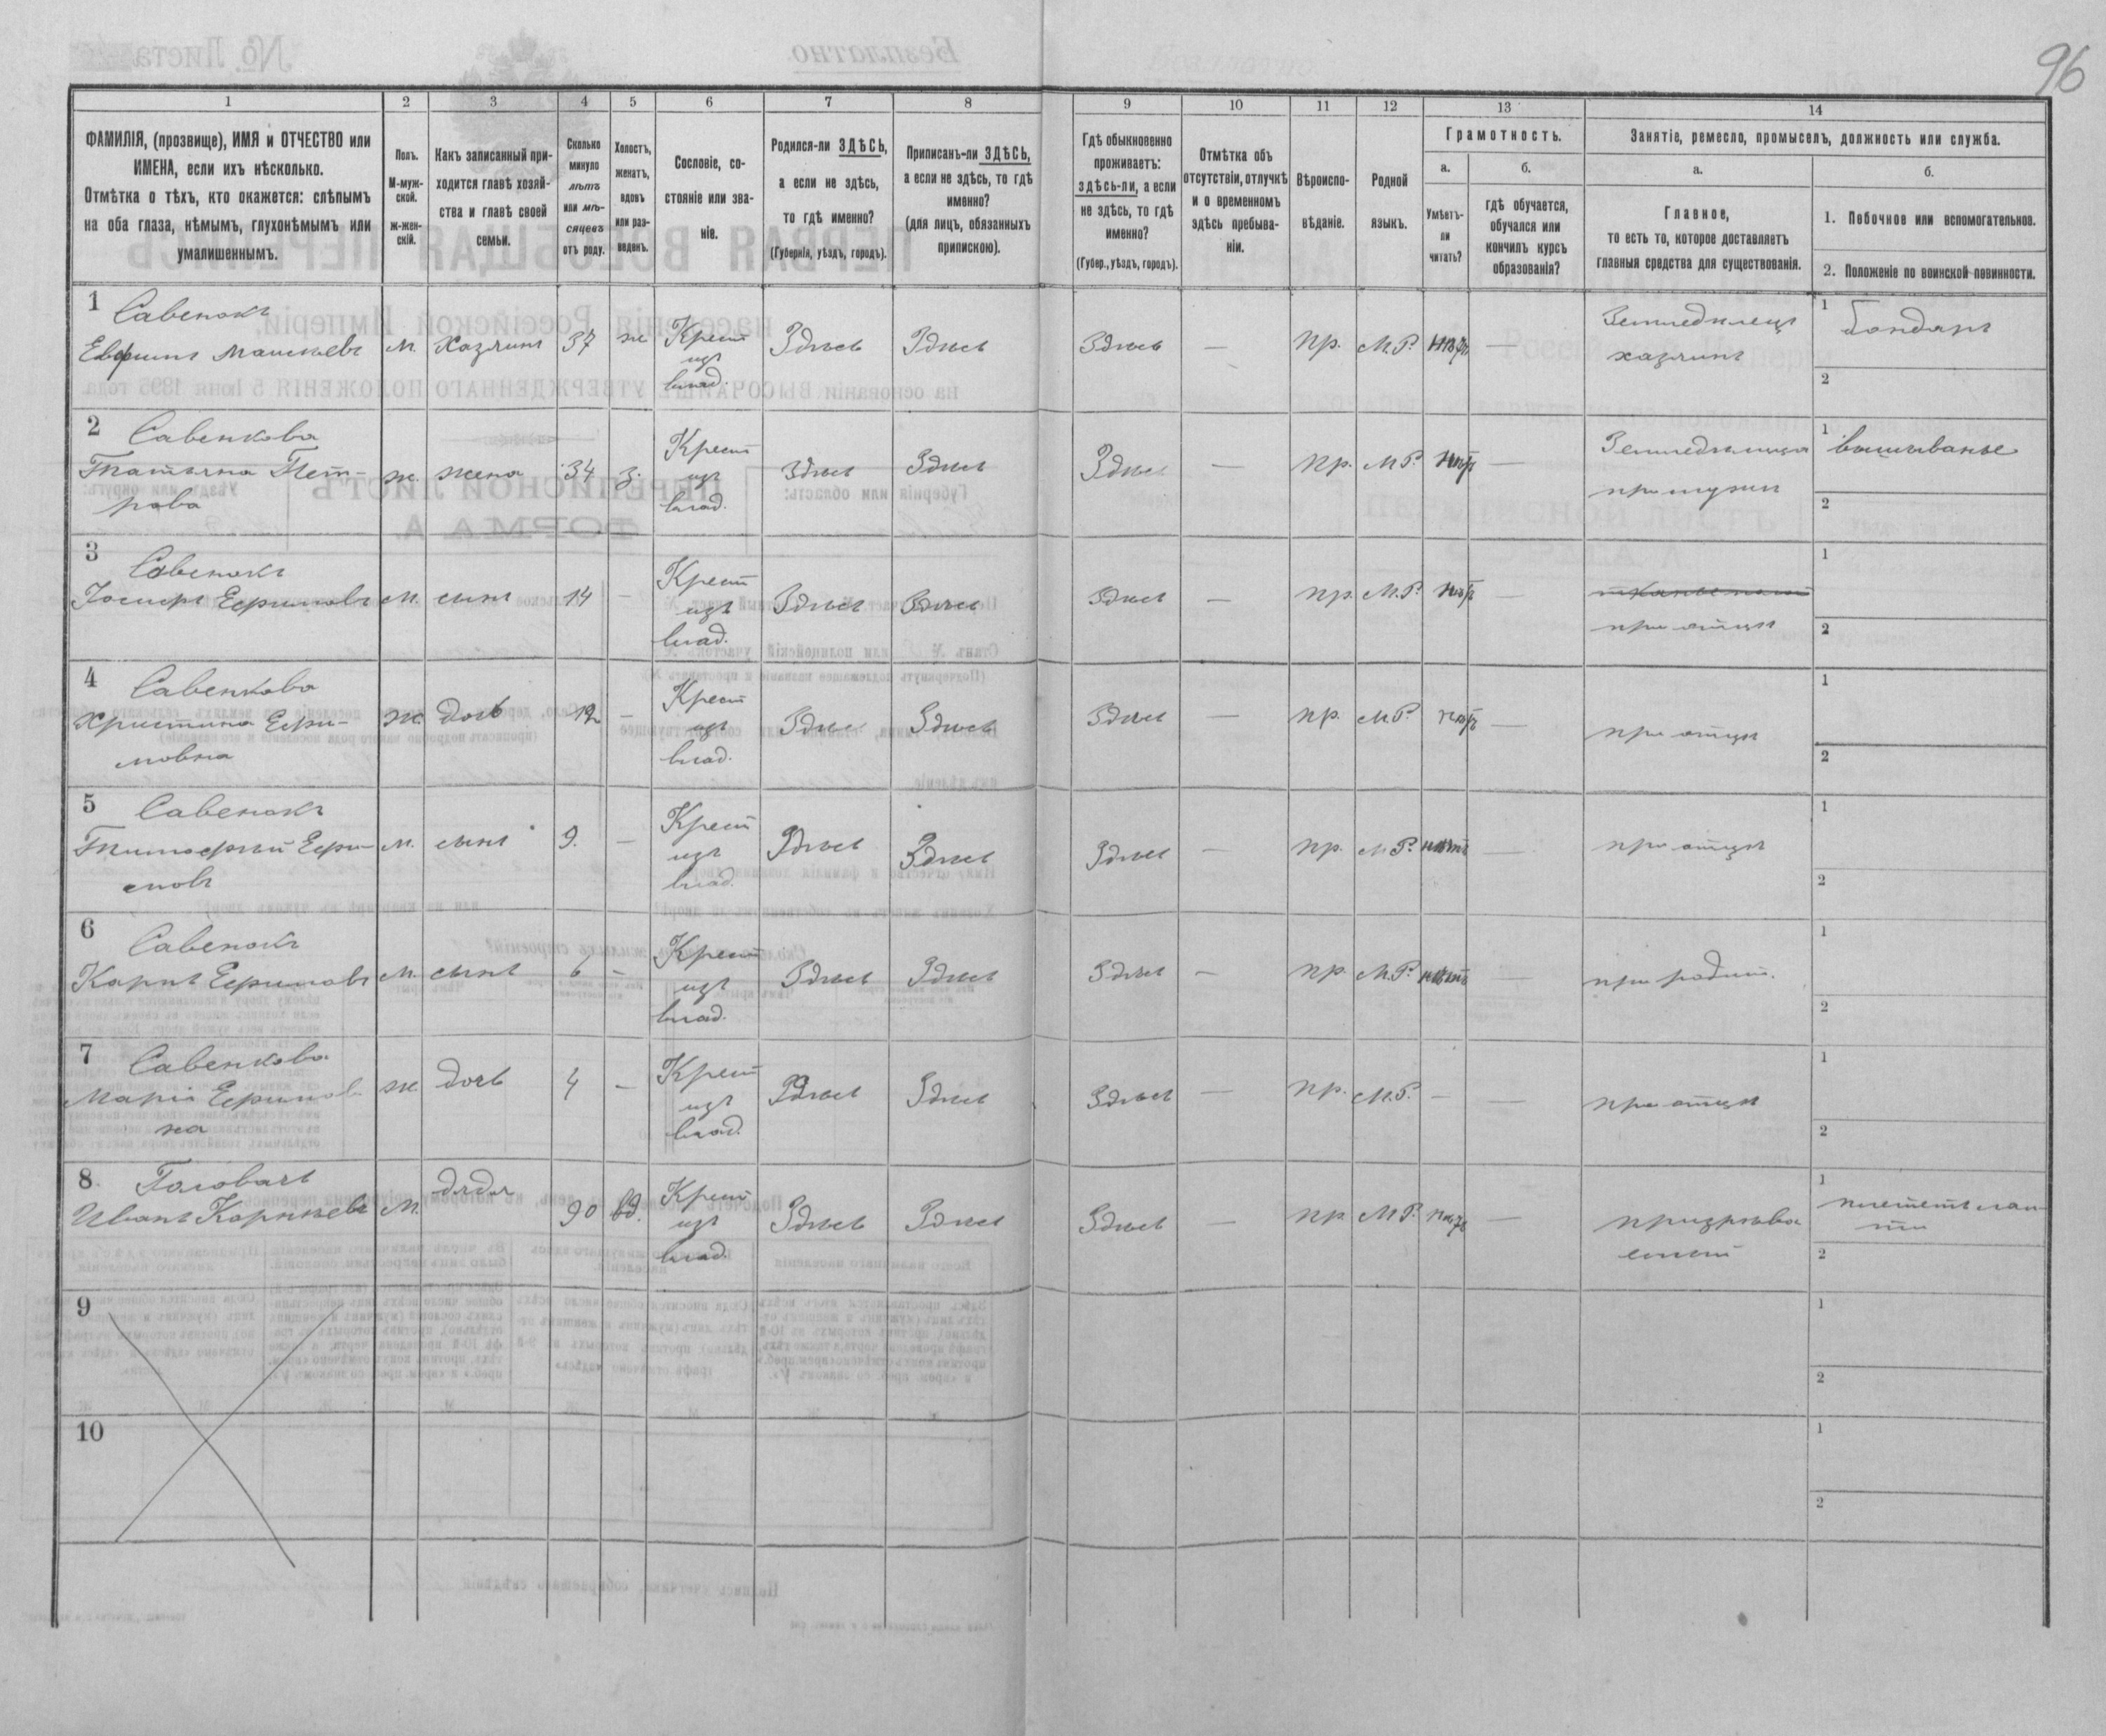 96
1 2 3 4 5 6 7 8 9 10 11 12 13 14
ФАМИЛІЯ, (прозвище), ИМЯ и ОТЧЕСТВО или
ИМЕНА, если ихъ нѣсколько.
Отмѣтка о тѣхъ, кто окажется: слѣпымъ
на оба глаза, нѣмымъ, глухонѣмымъ или
умалишеннымъ.
Полъ.
М-муж-
ской.
ж-жен-
скій.
Какъ записанный при-
ходится главѣ хозяй-
ства и главѣ своей
семьи.
Сколько
минуло
лѣтъ
или мѣ-
сяцевъ
отъ роду.
Холостъ,
женатъ,
вдовъ
или раз-
веденъ.
Сословіе, со-
стояніе или зва-
ніе.
Родился-ли ЗДѢСЬ,
а если не здѣсь,
то гдѣ именно?
(Губернія, уѣздъ, городъ).
Приписанъ-ли ЗДѢСЬ,
а если не здѣсь, то гдѣ
именно?
(для лицъ, обязанныхъ
припискою).
Гдѣ обыкновенно
проживаетъ:
здѣсь-ли, а если
не здѣсь, то гдѣ
именно?
(Губер., уѣздъ, городъ).
Отмѣтка объ
отсутствіи, отлучкѣ
и о временномъ
здѣсь пребыва-
ніи.
Вѣроиспо-
вѣданіе.
Родной
языкъ.
Грамотность.
а.
Умѣетъ-
ли
читать?
б.
гдѣ обучается,
обучался или
кончилъ курсъ
образованія?
Занятіе, ремесло, промыселъ, должность или служба.
а.
Главное,
то есть то, которое доставляетъ
главныя средства для существованія.
б.
1. Побочное или вспомогательное.
2. Положеніе по воинской повинности.
1 Савенокъ
Евфимъ м. Хазяинъ 37 ж Крест Здѣсь Здѣсь Здѣсь — пр. М.Р. — Земледѣлецъ 1 Бондарь
изъ
влад.
хазяинъ
2
2 Савенкова
Татьяна Пет- ж. жена 34 з. Крест Здѣсь Здѣсь Здѣсь — пр. М.Р. — 1 вышиванье
рова
изъ
влад.
при мужѣ
2
3 Савенокъ
Іосифъ Ефимовъ м. сынъ 14 — Крест Здѣсь Здѣсь Здѣсь — пр. М.Р. — 1
изъ
влад.
при отцѣ
2
4 Савенкова
Христина Ефи- ж. дочь 12 — Крест Здѣсь Здѣсь Здѣсь — пр. М.Р. — при отцѣ 1
мовна
изъ
влад.
2
5 Савенокъ
Тимофѣй Ефи- м. сынъ 9. — Крест Здѣсь Здѣсь Здѣсь — пр. М.Р. нѣтъ — при отцѣ 1
мовъ
изъ
влад.
2
6 Савенокъ
Карпъ Ефимовъ м. сынъ 6 — Крест Здѣсь Здѣсь Здѣсь — пр. М.Р. нѣтъ — при родит. 1
изъ
влад.
2
7 Савенкова
Марія Ефимов ж. дочь 4 — Крест Здѣсь Здѣсь Здѣсь — пр. М.Р. — — при отцѣ 1
на
изъ
влад.
2
8. Головачъ
Иванъ Карпѣевъ М. дядя 90 вд. Крест Здѣсь Здѣсь Здѣсь — пр М.Р. — призрѣва 1 плететъ лап-
изъ
влад.
емый
ти
2
9 1
2
10 1
2